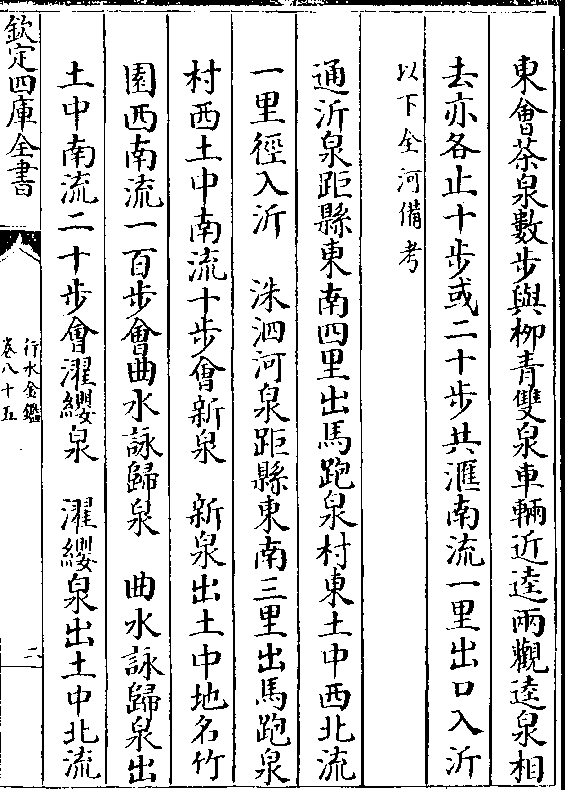 東會茶泉數步與柳青雙泉車輛近逵兩觀逵泉相
去亦各止十步或二十步共滙南流一里出口入沂
以下全河備考
通沂泉距縣東南四里出馬跑泉村東土中西北流
一里徑入沂　洙泗河泉距縣東南三里出馬跑泉
村西土中南流十步會新泉　新泉出土中地名竹
園西南流一百步會曲水詠歸泉　曲水詠歸泉出
土中南流二十步會濯纓泉　濯纓泉出土中北流
欽定四庫全書
行水金鑑
卷八十五
二